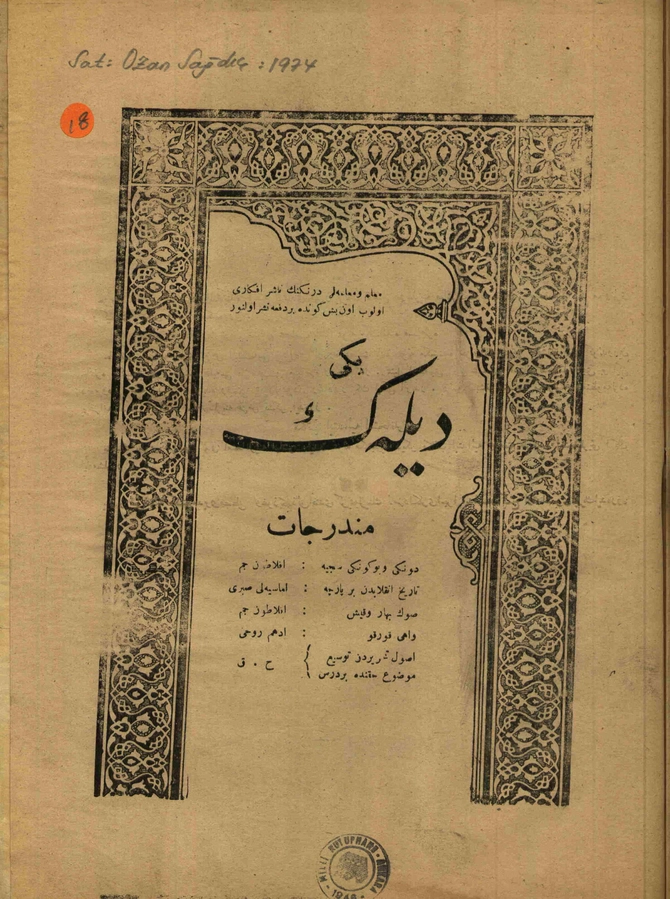 Sat: Ozan Sağdıç : 1974
18
معلم ومعلمه‌لر درنكنك ناشر افكاری
اولوب اون بش كونده بر دفعه نشر اولنور
یكی
دیله‌ك
مندرجات
دونكی وبوكونكی سجیه : افلاطون جم
تاریخ انقلابدن بر پارچه : اماسیه‌لی صبری
صوك بهار وقیش : افلاطون جم
واهی قورقو : ادهم روحی
اصول تحریردن توسیع
موضوع حقنده بردرس } ح . ق
MİLLİ KÜTÜPHANE · ANKARA
1946